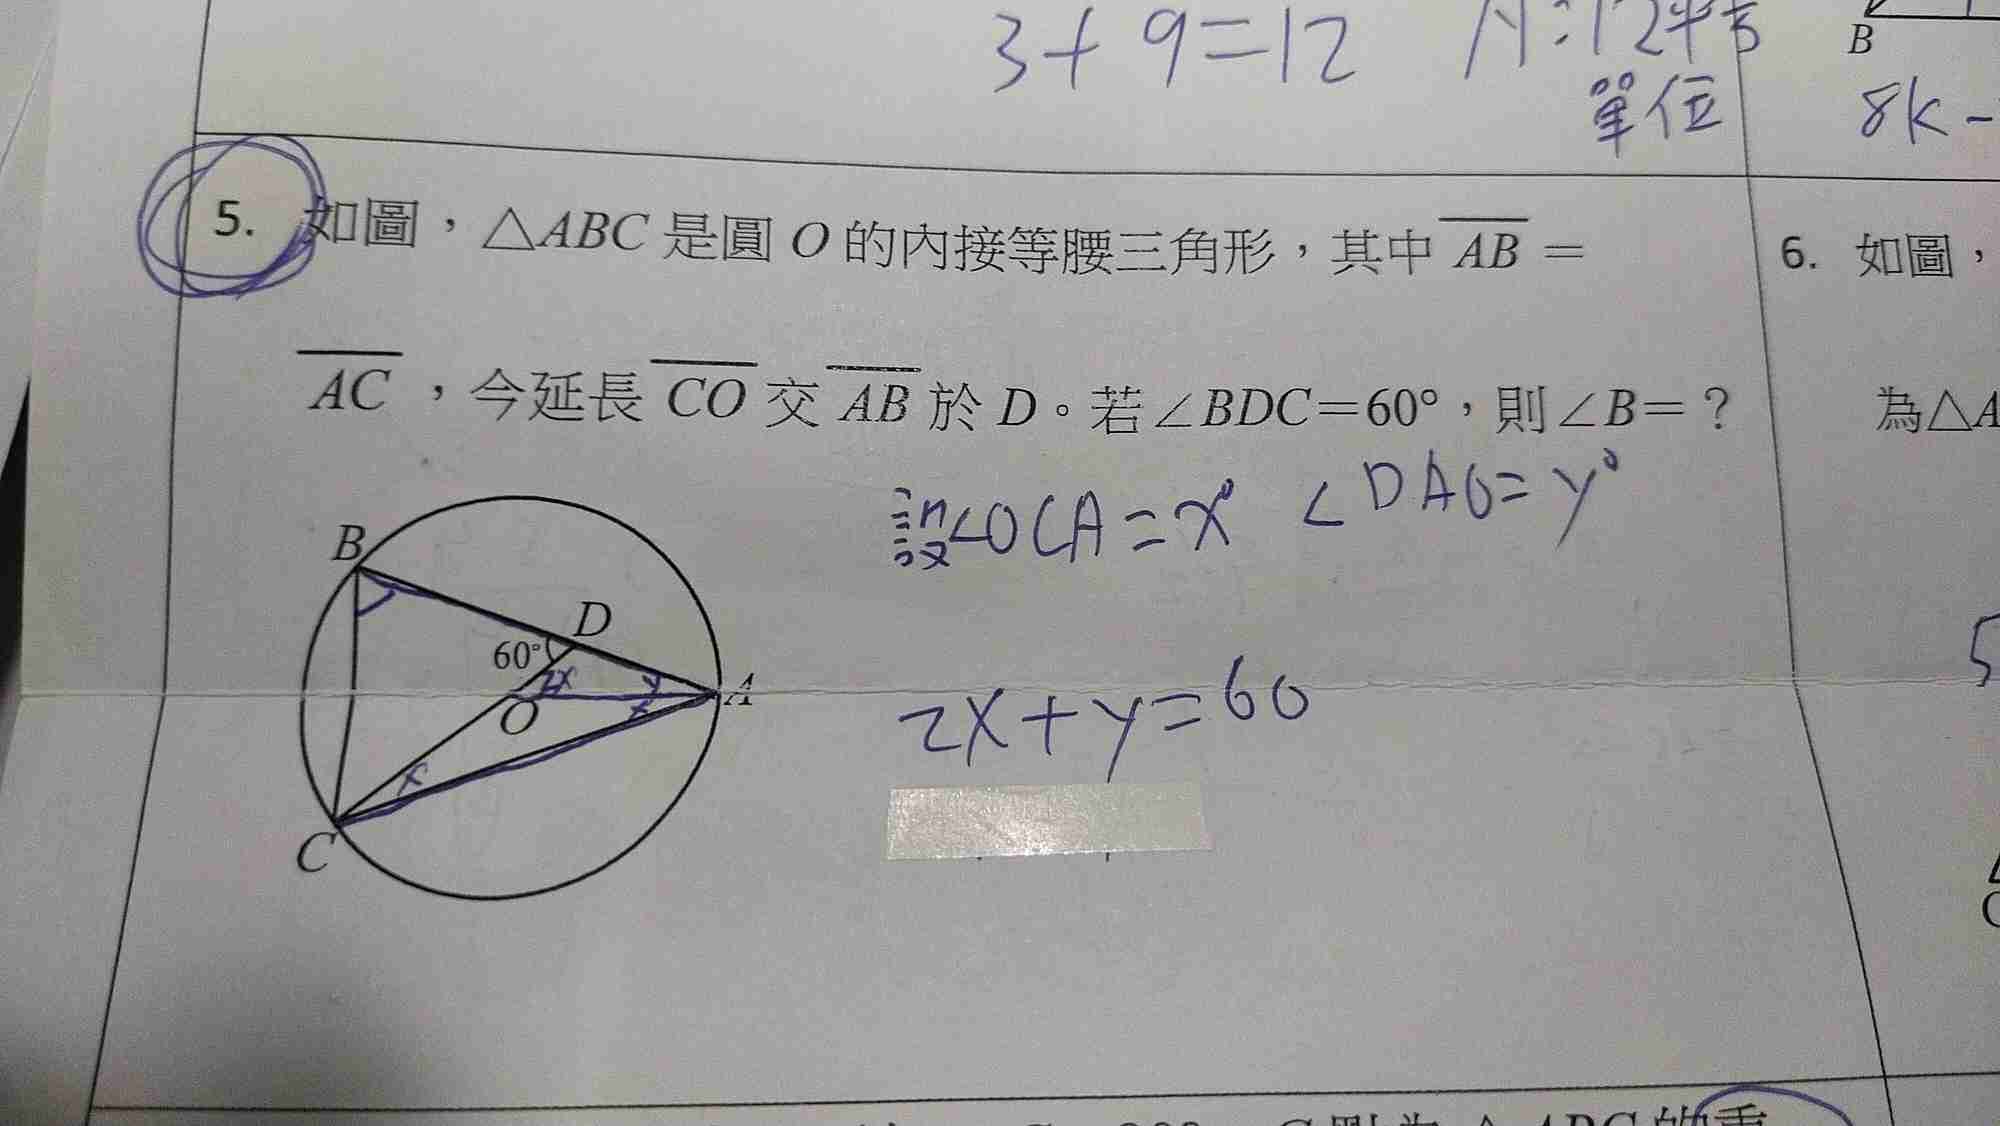 3+9=12 A:12平方
單位
B
8k-
5. 如圖，△ABC 是圓 O 的內接等腰三角形，其中 AB =
AC ，今延長 CO 交 AB 於 D。若∠BDC=60°，則∠B=？
6. 如圖，
為△A
設∠OCA=x° ∠DAO=y°
2x+y=60
B
D
60°
2x
y
A
O
x
x
C
5
C
△ABC 的重